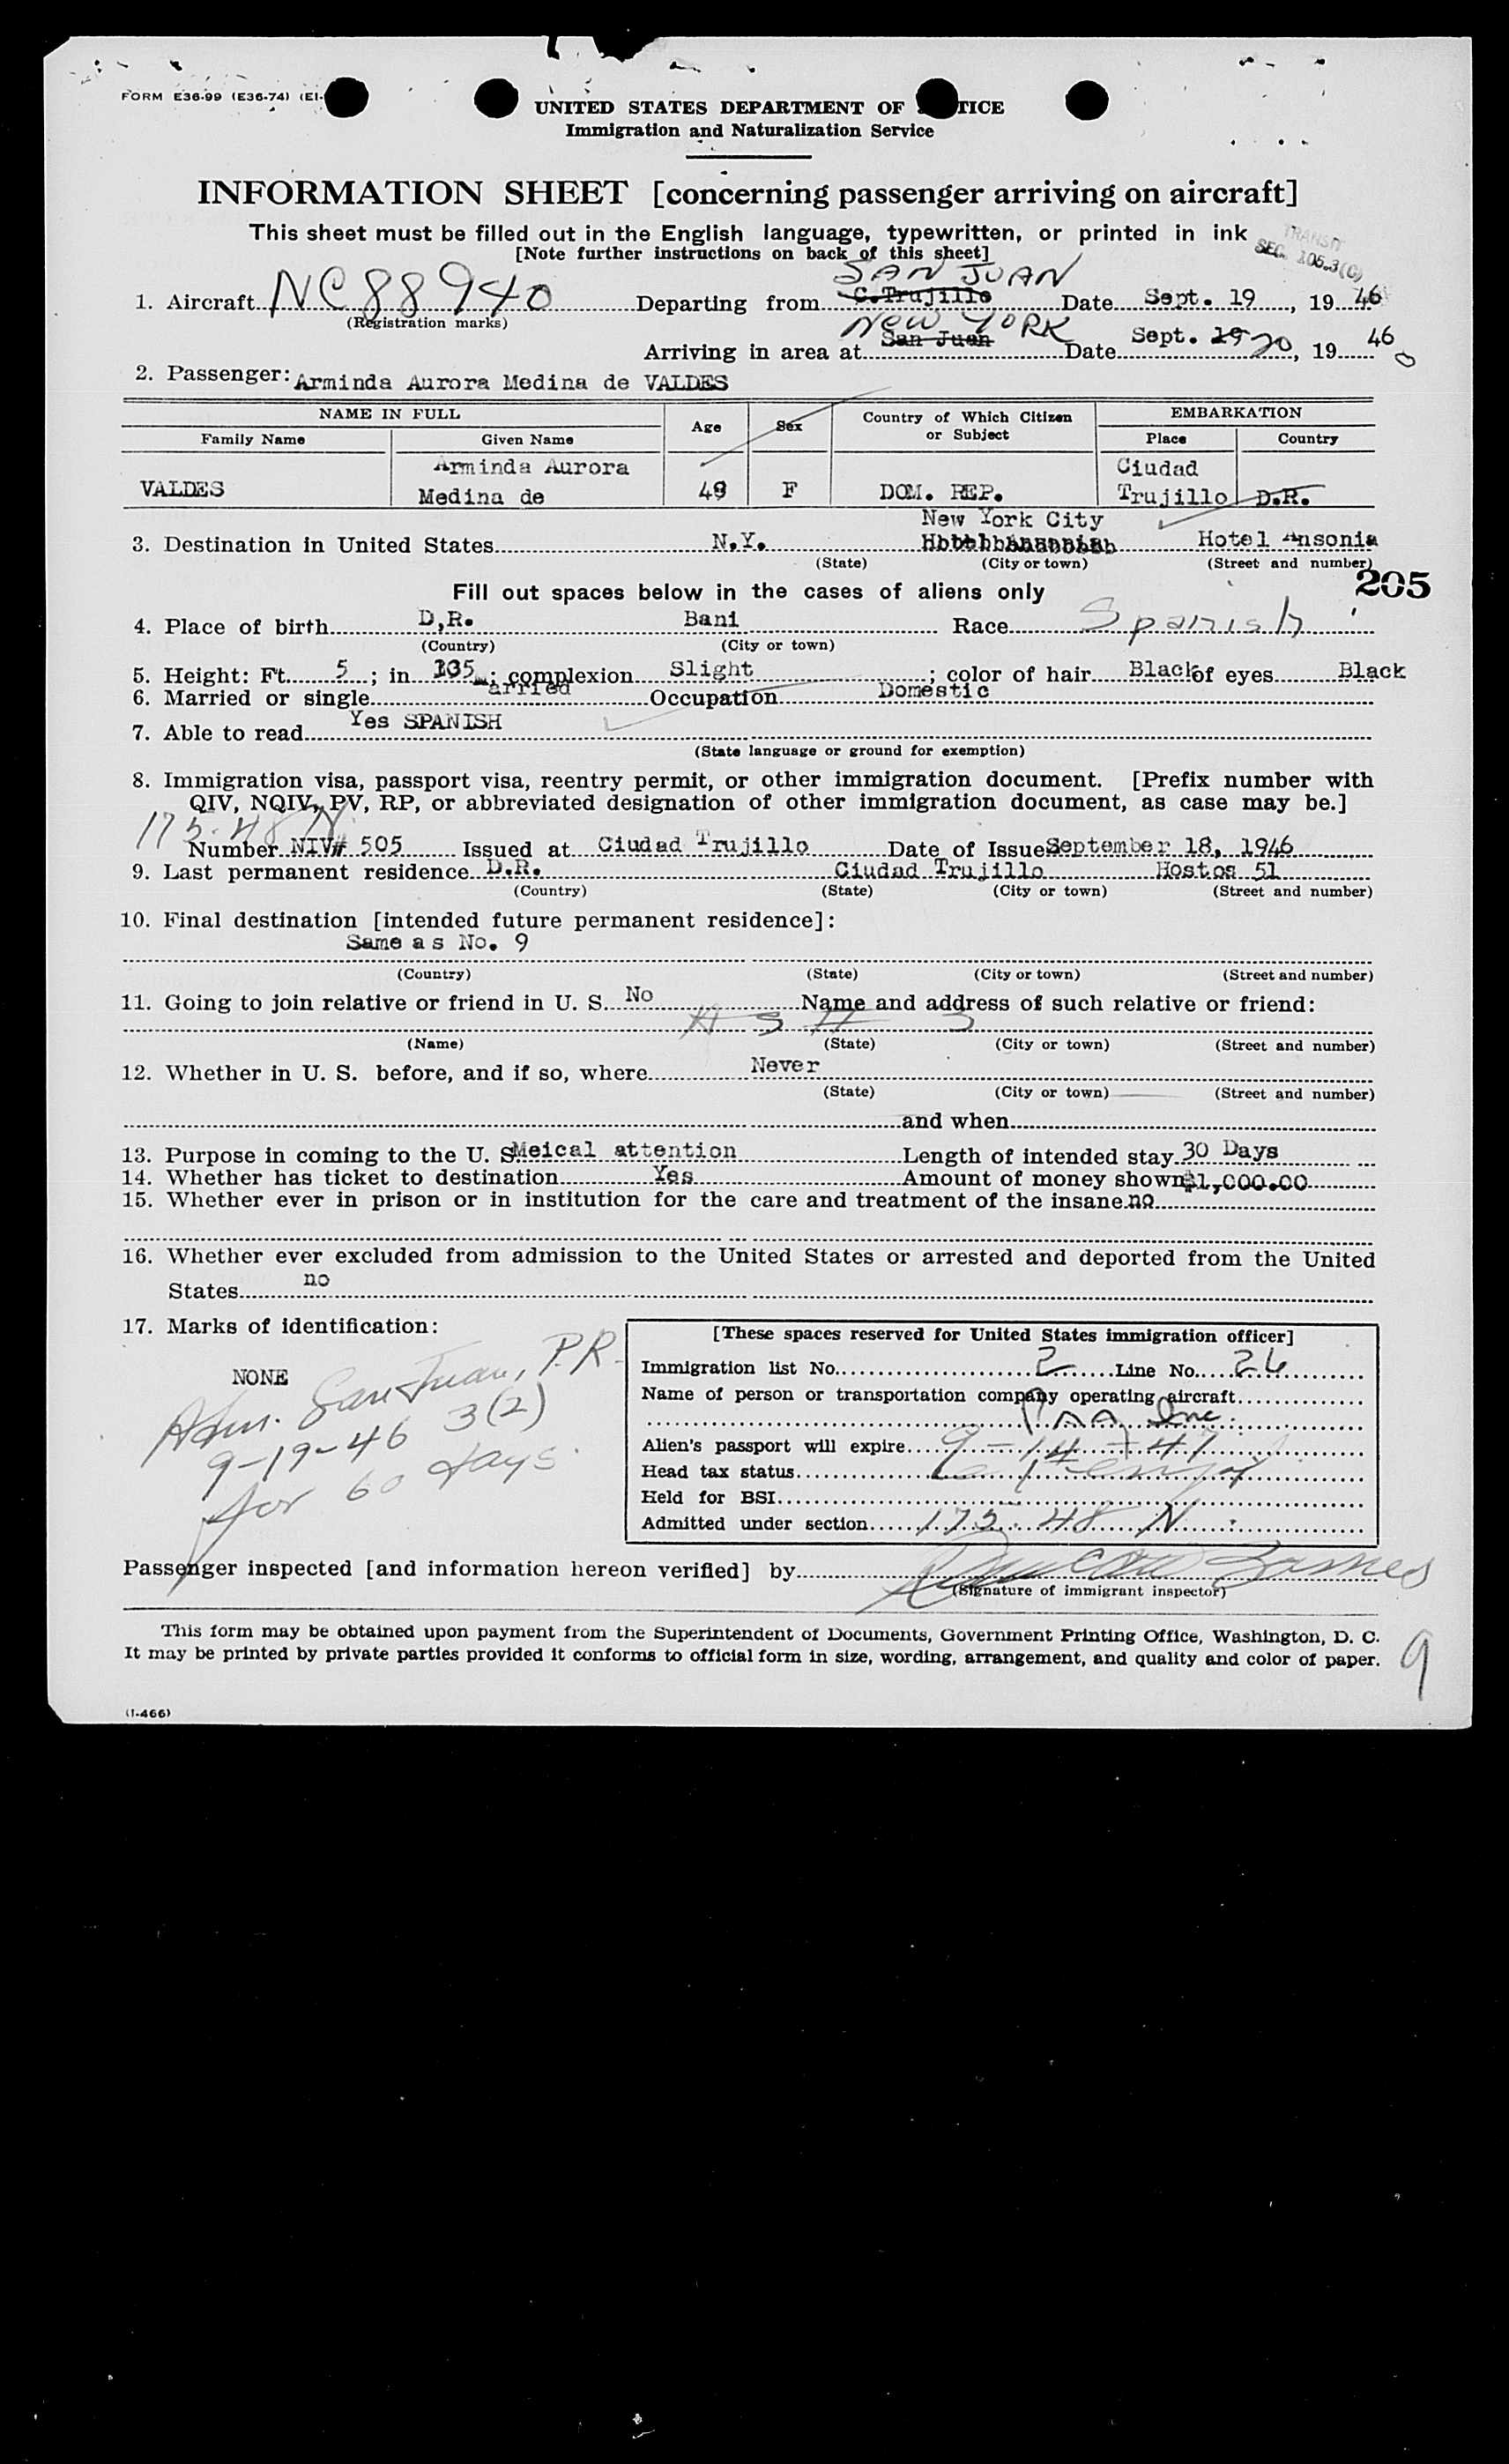 FORM E36-99 (E36-74) (EI-
UNITED STATES DEPARTMENT OF TICE
Immigration and Naturalization Service
INFORMATION SHEET [concerning passenger arriving on aircraft]
This sheet must be filled out in the English language, typewritten, or printed in ink
[Note further instructions on back of this sheet]
TRANSIT
SEC. 105.3(C)
SAN JUAN
1. Aircraft NC88940 Departing from C.Trujillo Date Sept. 19, 1946
(Registration marks)
NEW YORK
Arriving in area at San Juan Date Sept. 19 20, 19 46
2. Passenger: Arminda Aurora Medina de VALDES
NAME IN FULL Age Sex Country of Which Citizen or Subject EMBARKATION
Family Name Given Name Place Country
Arminda Aurora Ciudad
VALDES Medina de 49 F DOM. REP. Trujillo D.R.
New York City
3. Destination in United States N.Y. Hotel Ansonia
(State) (City or town) (Street and number)
205
Fill out spaces below in the cases of aliens only
4. Place of birth D,R. Bani Race Spanish
(Country) (City or town)
5. Height: Ft. 5; in ; complexion Slight; color of hair Black of eyes Black
6. Married or single arried Occupation Domestic
7. Able to read Yes SPANISH
(State language or ground for exemption)
8. Immigration visa, passport visa, reentry permit, or other immigration document. [Prefix number with
QIV, NQIV, PV, RP, or abbreviated designation of other immigration document, as case may be.]
175.48 N
Number NIV# 505 Issued at Ciudad Trujillo Date of Issue September 18, 1946
9. Last permanent residence D.R. Ciudad Trujillo Hostos 51
(Country) (State) (City or town) (Street and number)
10. Final destination [intended future permanent residence]:
Same as No. 9
(Country) (State) (City or town) (Street and number)
11. Going to join relative or friend in U. S. No Name and address of such relative or friend:
(Name) (State) (City or town) (Street and number)
12. Whether in U. S. before, and if so, where Never
(State) (City or town) (Street and number)
and when
13. Purpose in coming to the U. S Meical attention Length of intended stay 30 Days
14. Whether has ticket to destination Yes Amount of money shown $1,000.00
15. Whether ever in prison or in institution for the care and treatment of the insane no
16. Whether ever excluded from admission to the United States or arrested and deported from the United
States no
17. Marks of identification:
NONE
Adm. San Juan, P.R.
9-19-46 3(2)
for 60 days.
[These spaces reserved for United States immigration officer]
Immigration list No. 2 Line No. 26
Name of person or transportation company operating aircraft
PAA Inc.
Alien's passport will expire 9-14-47
Head tax status
Held for BSI
Admitted under section 175.48 N
Passenger inspected [and information hereon verified] by
(Signature of immigrant inspector)
This form may be obtained upon payment from the Superintendent of Documents, Government Printing Office, Washington, D. C.
It may be printed by private parties provided it conforms to official form in size, wording, arrangement, and quality and color of paper.
9
(I-466)